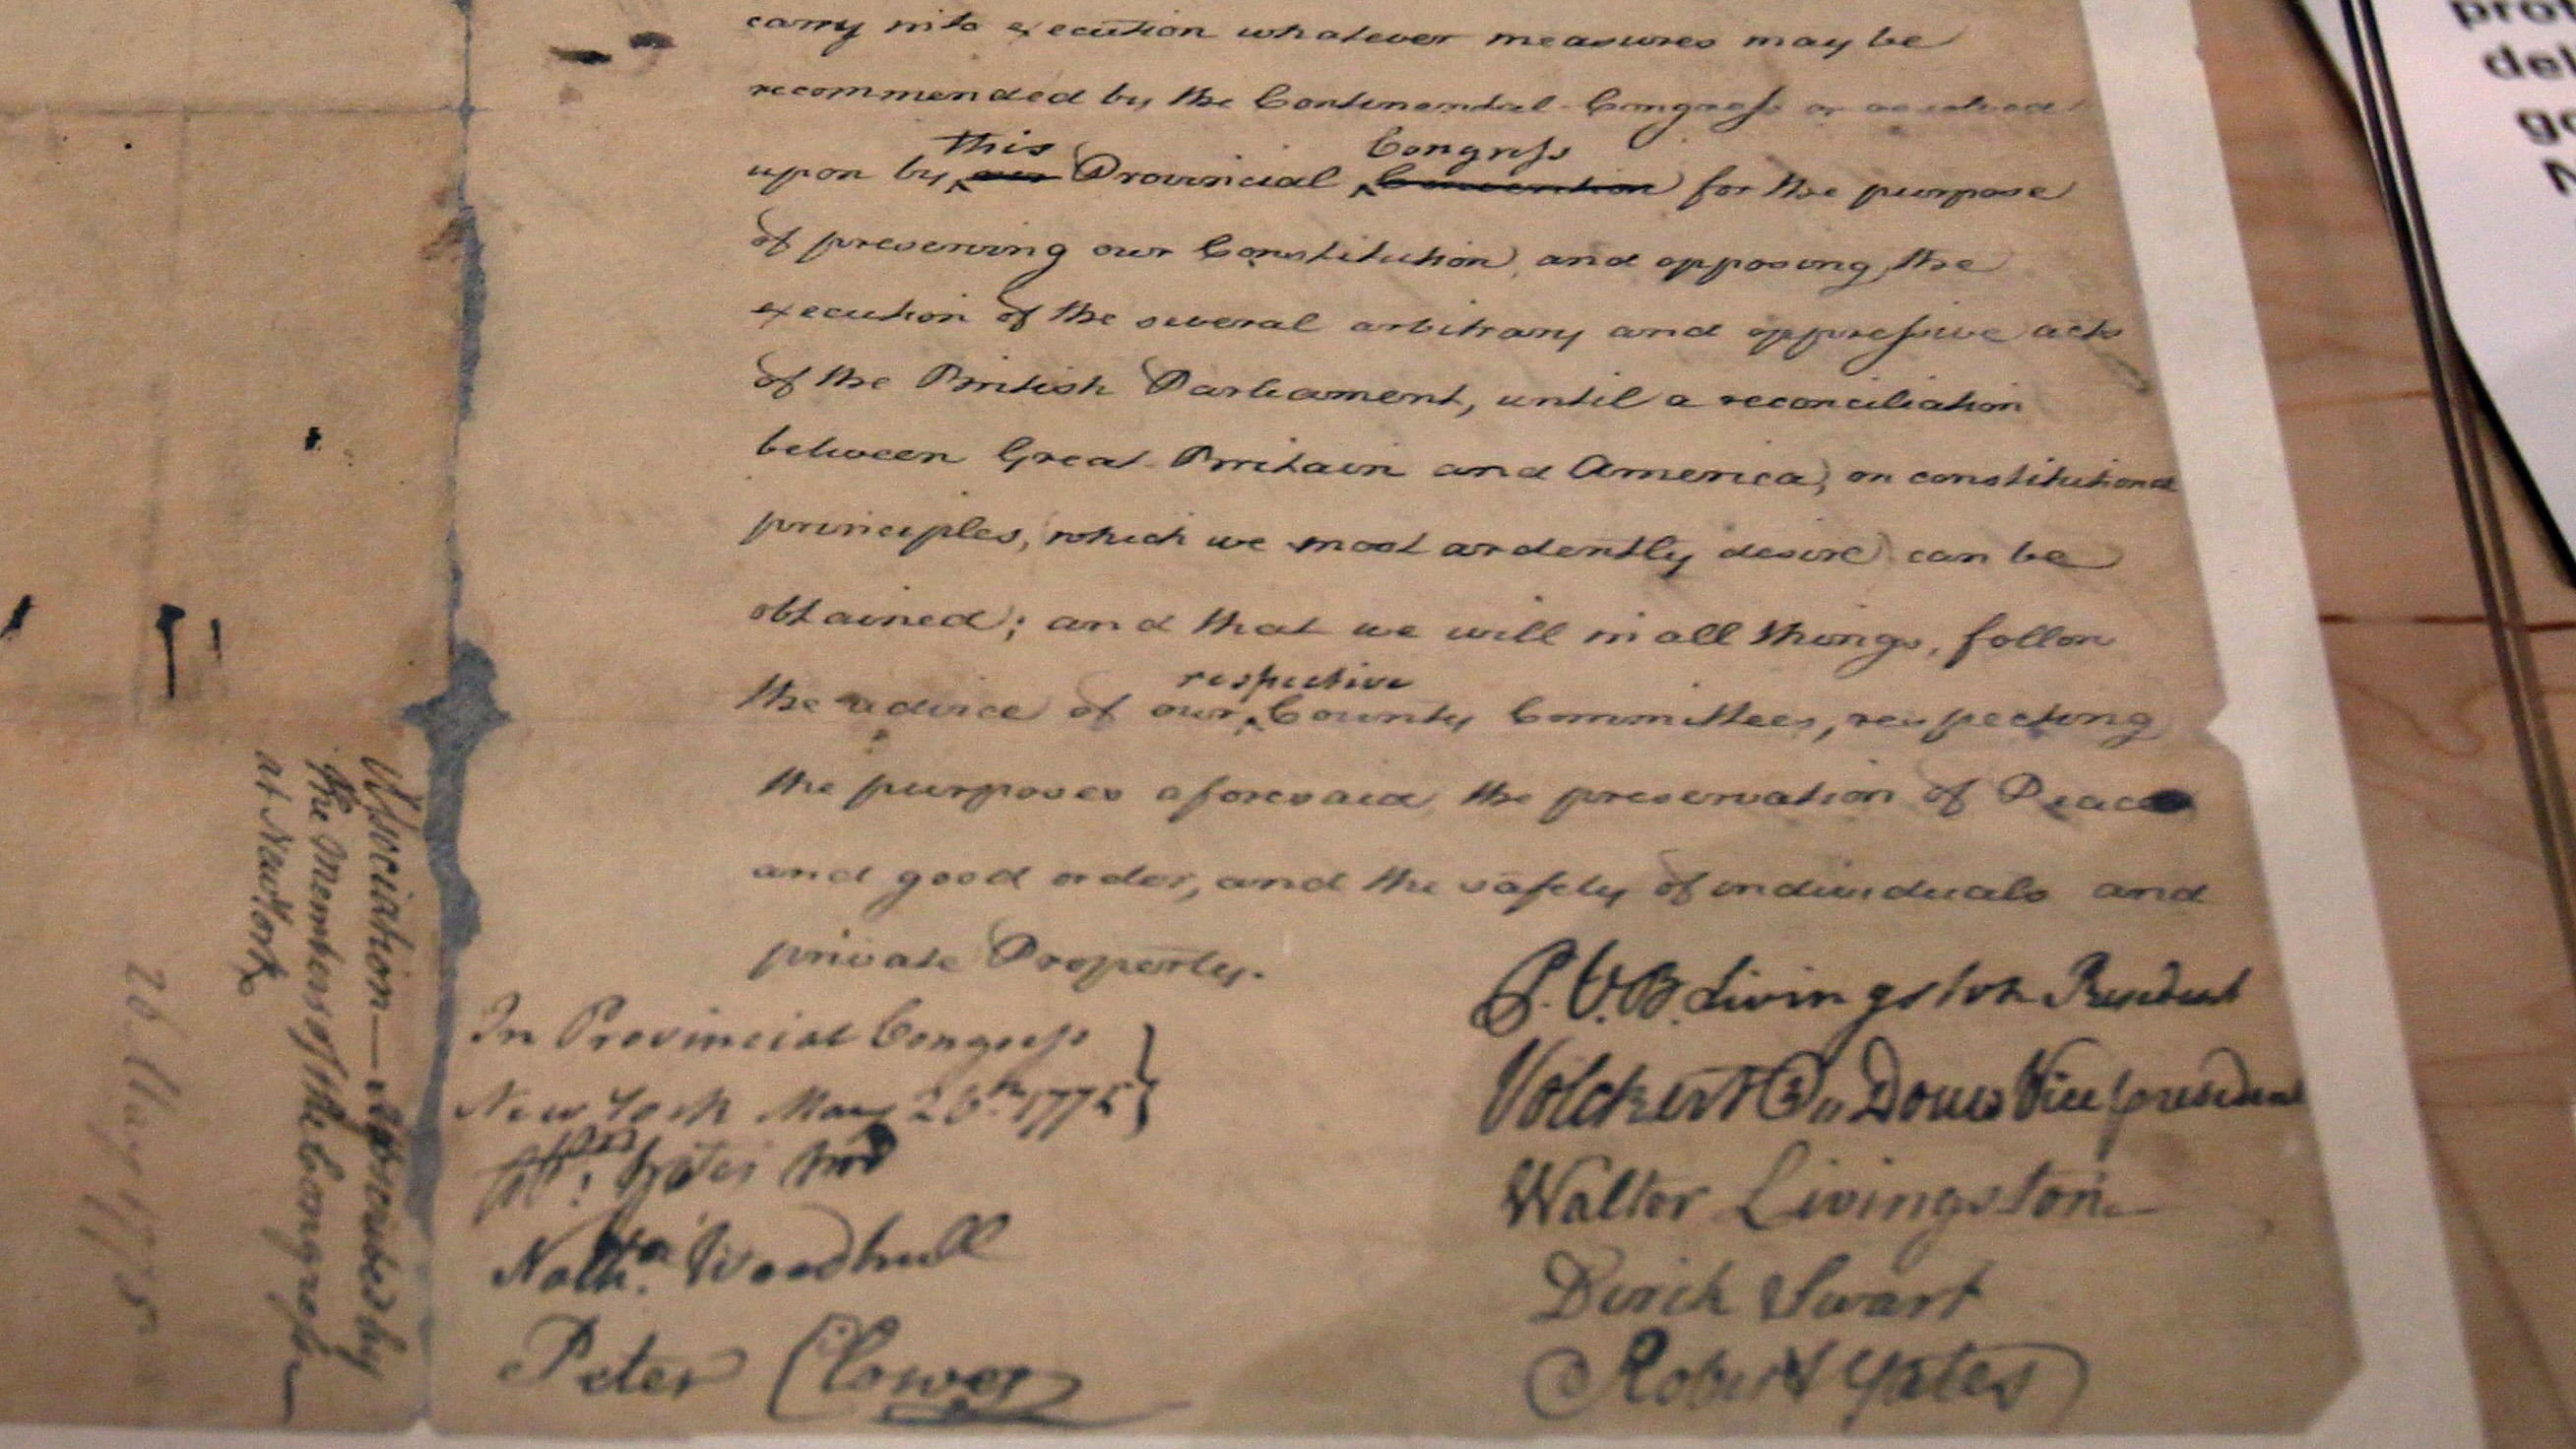 carry into execution whatever measures may be
recommended by the Continental Congress or resolved
this Congress
upon by our Provincial Convention for the purpose
of preserving our Constitution, and opposing the
execution of the several arbitrary and oppressive acts
of the British Parliament, until a reconciliation
between Great Britain and America, on constitutional
principles, which we most ardently desire) can be
obtained; and that we will in all things, follow
respective
the advice of our County Committees, respecting
the purposes aforesaid, the preservation of Peace
and good order, and the safety of individuals and
private Property.
In Provincial Congress
New York May 26th 1775
Yates Junr
Nathl. Woodhull
Peter Clowes
P. V. B. Livingston President
Volckert P. Douw Vice president
Walter Livingston
Dirck Swart
Robert Yates
Association — subscribed by
the Members of the Congress
at New York
26 May 1775